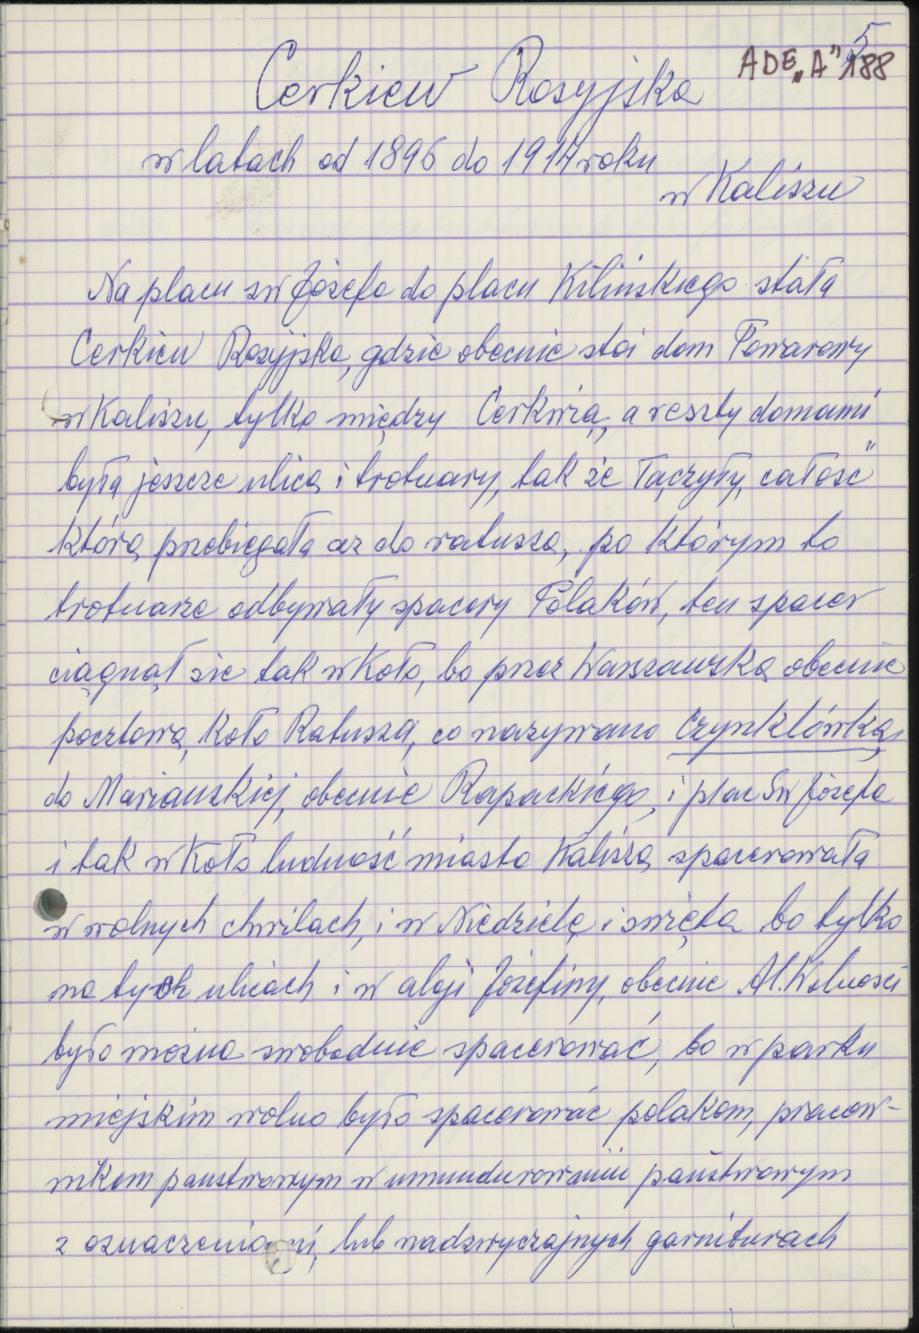 5
ADE "A" 188
Cerkiew Rosyjska
w latach od 1896 do 1914 roku
w Kaliszu
Na placu św Józefa do placu Kilińskiego stała
Cerkiew Rosyjska, gdzie obecnie stoi dom Towarowy
w Kaliszu, tylko między Cerkwią, a reszty domami
była jeszcze ulica i trotuary, tak że łączyły całość
która przebiegała aż do ratusza, po którym to
trotuarze odbywały spacery Polaków, ten spacer
ciągnął sie tak w koło, bo przez Warszawską obecnie
pocztową, koło Ratusza, co nazywano Czynklówką,
do Mariańskiej, obecnie Rapackiego, i plac Św Józefa
i tak w koło ludność miasta Kalisza spacerowała
w wolnych chwilach, i w Niedziele i święta bo tylko
na tych ulicach i w aleji Józefiny, obecnie Al. Wolności
było można swobodnie spacerować, bo w parku
miejskim wolno było spacerować polakom, pracow-
nikom państwowym w umundurowaniu państwowym
z oznaczeniami, lub nadzwyczajnych garniturach